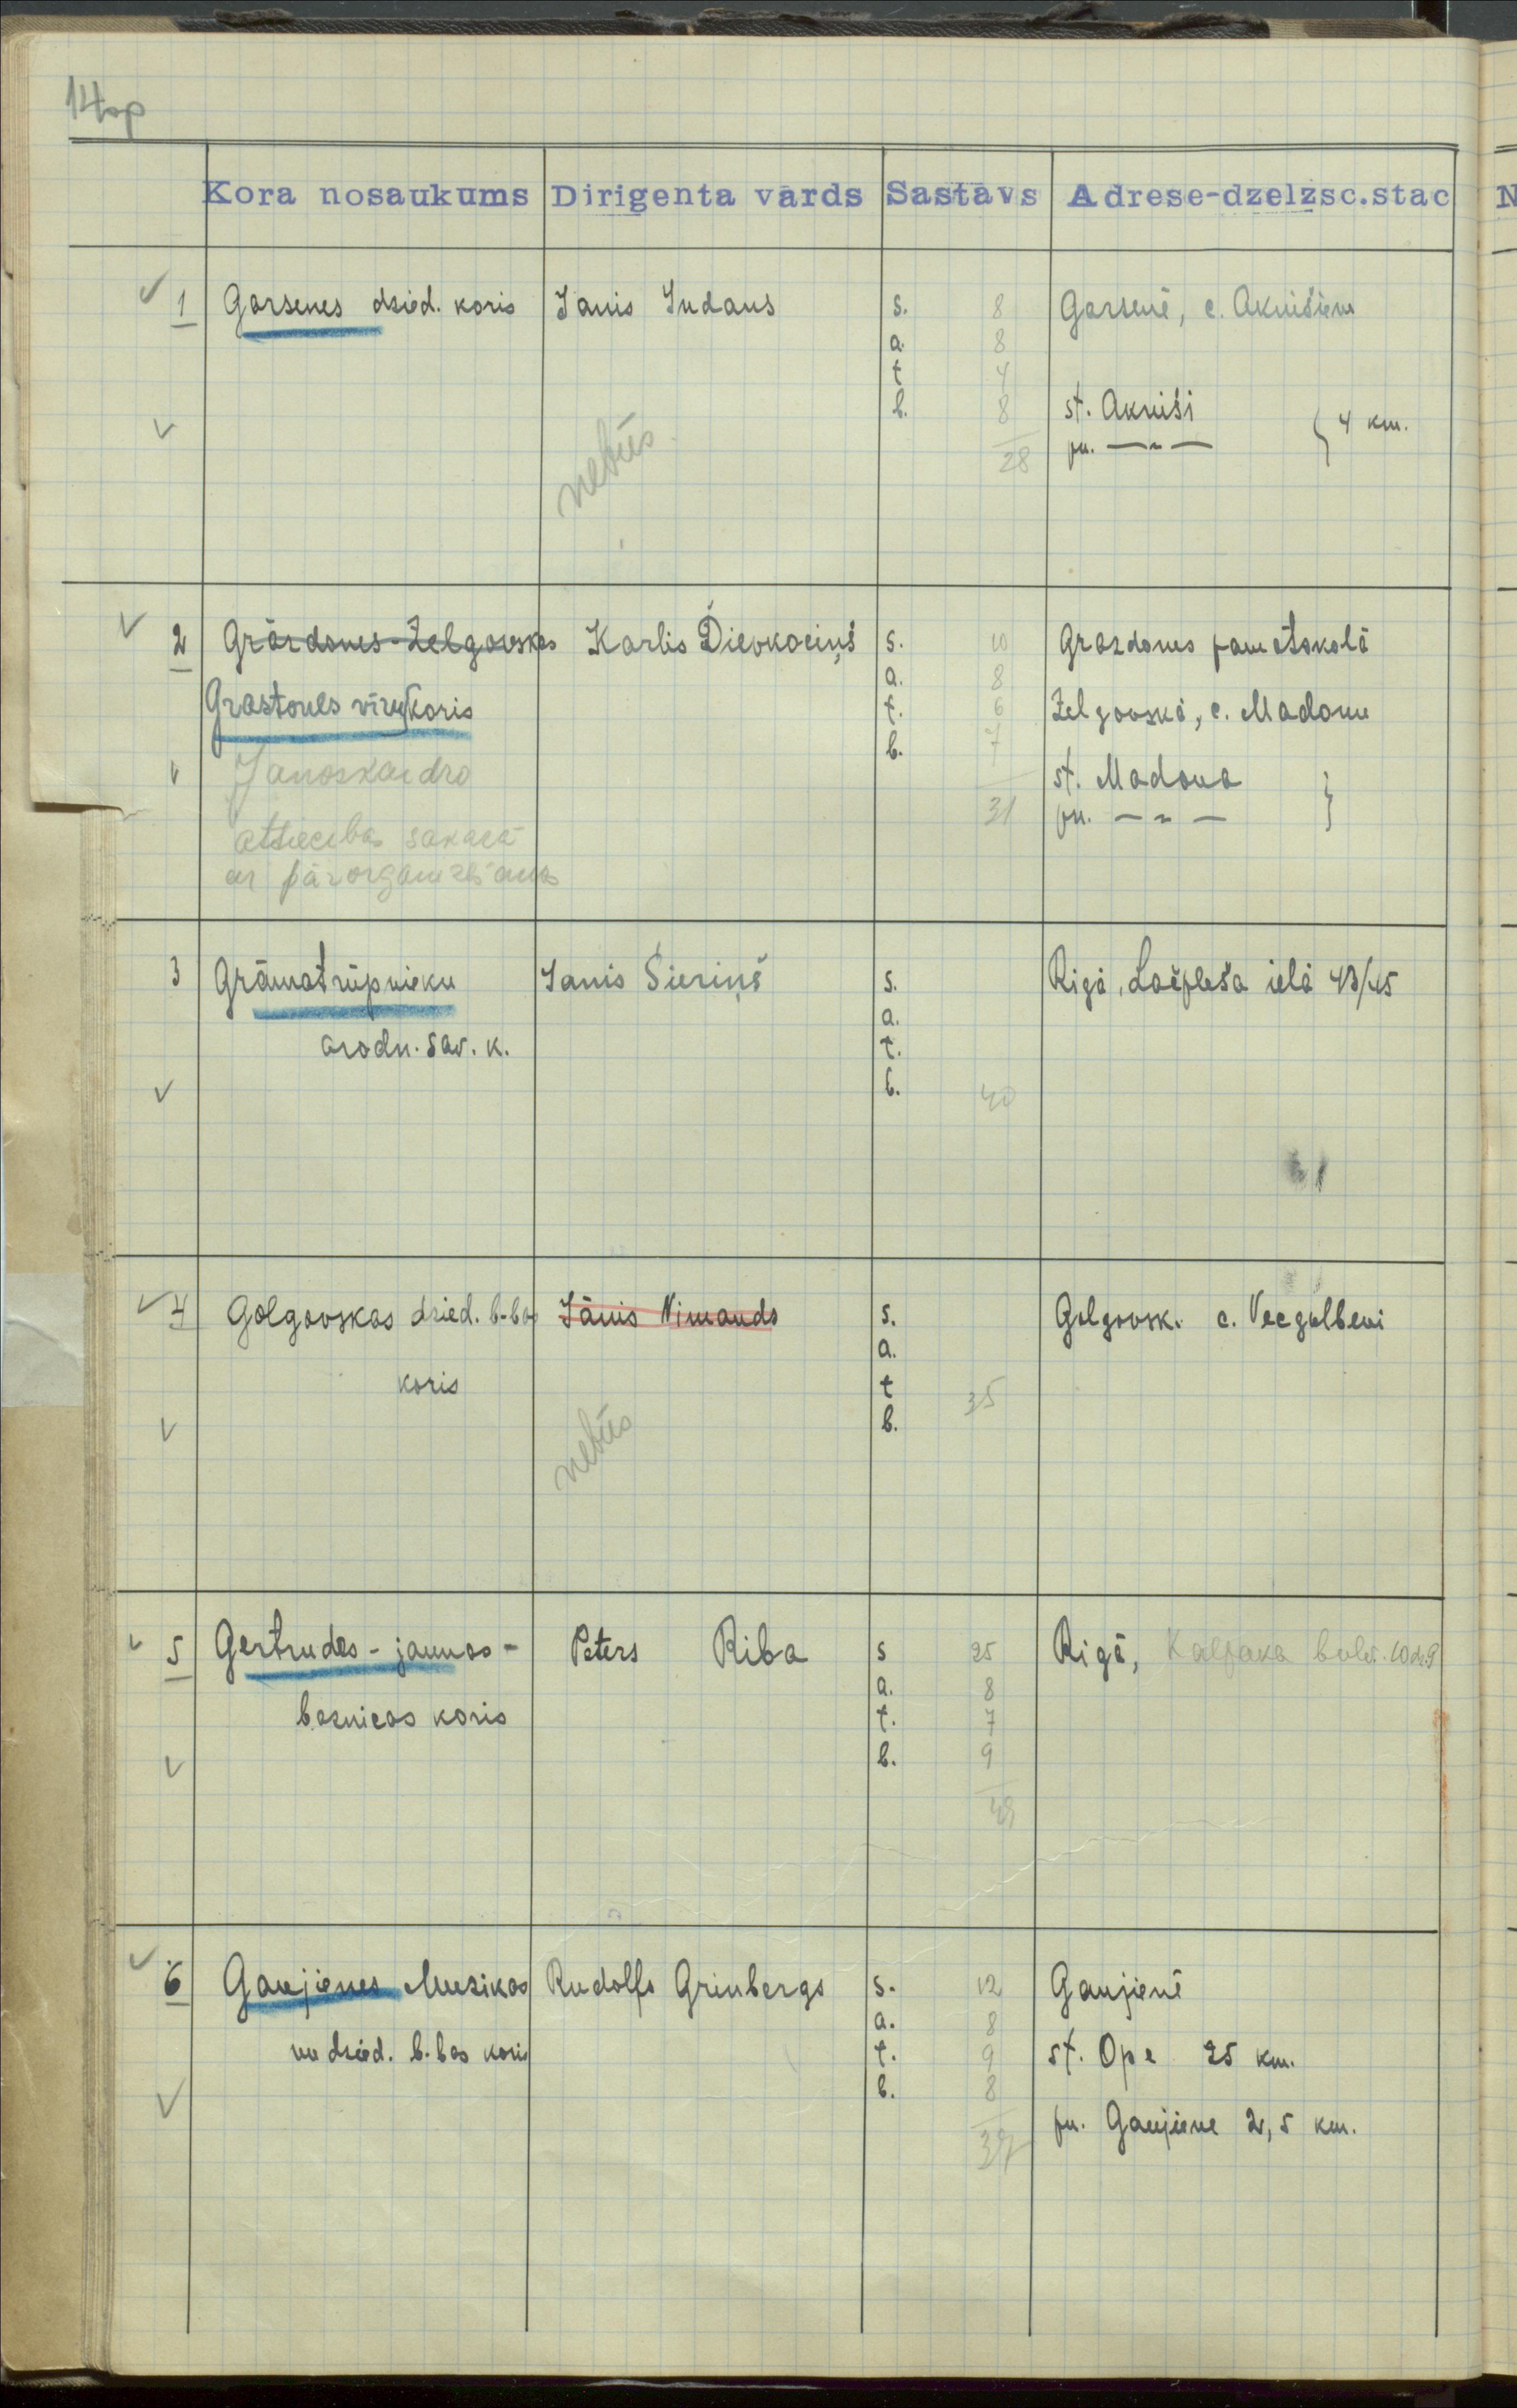 14op
Kora nosaukums Dirigenta vārds Sastāvs Adrese-dzelzsc.stac
1 Garsenes dzied. koris Janis Indans s. 8 Garsenē, c. Aknišiem
a. 8
t 4
b. 8 st. Akniši
pu. —"— } 4 km.
28
nebūs.
2 Grārdones-Zelgauskas Karlis Dievkociņš s. 10 Grazdonas pamatskolā
a. 8
Grostones vīru koris t. 6 Zelgovskā, c. Madonu
b. 7
Janoskaidro st. Madona }
31 pu. —"—
attiecības sakarā
ar pārorganizēšanos
3 Grāmatrūpnieku Janis Sieriņš s. Rigā, Lačpleša ielā 43/45
a.
arodn. sav. k. t.
b. 40
4 Golgovskas dzied. b-bas Jānis Nimands s. Golgovsk. c. Vecgulbeni
a.
koris t 35
b.
nebūs
5 Gertrudes - jaunas - Peters Riba s 25 Rigā, Kalpaka bulv. 10 dz. 9
a. 8
baznicas koris t. 7
b. 9
49
6 Gaujienes Muzikas Rudolfs Grinbergs s. 12 Gaujienē
a. 8
un dzied. b-bas koris t. 9 st. Ape 25 km.
b. 8
pu. Gaujiene 2,5 km.
37